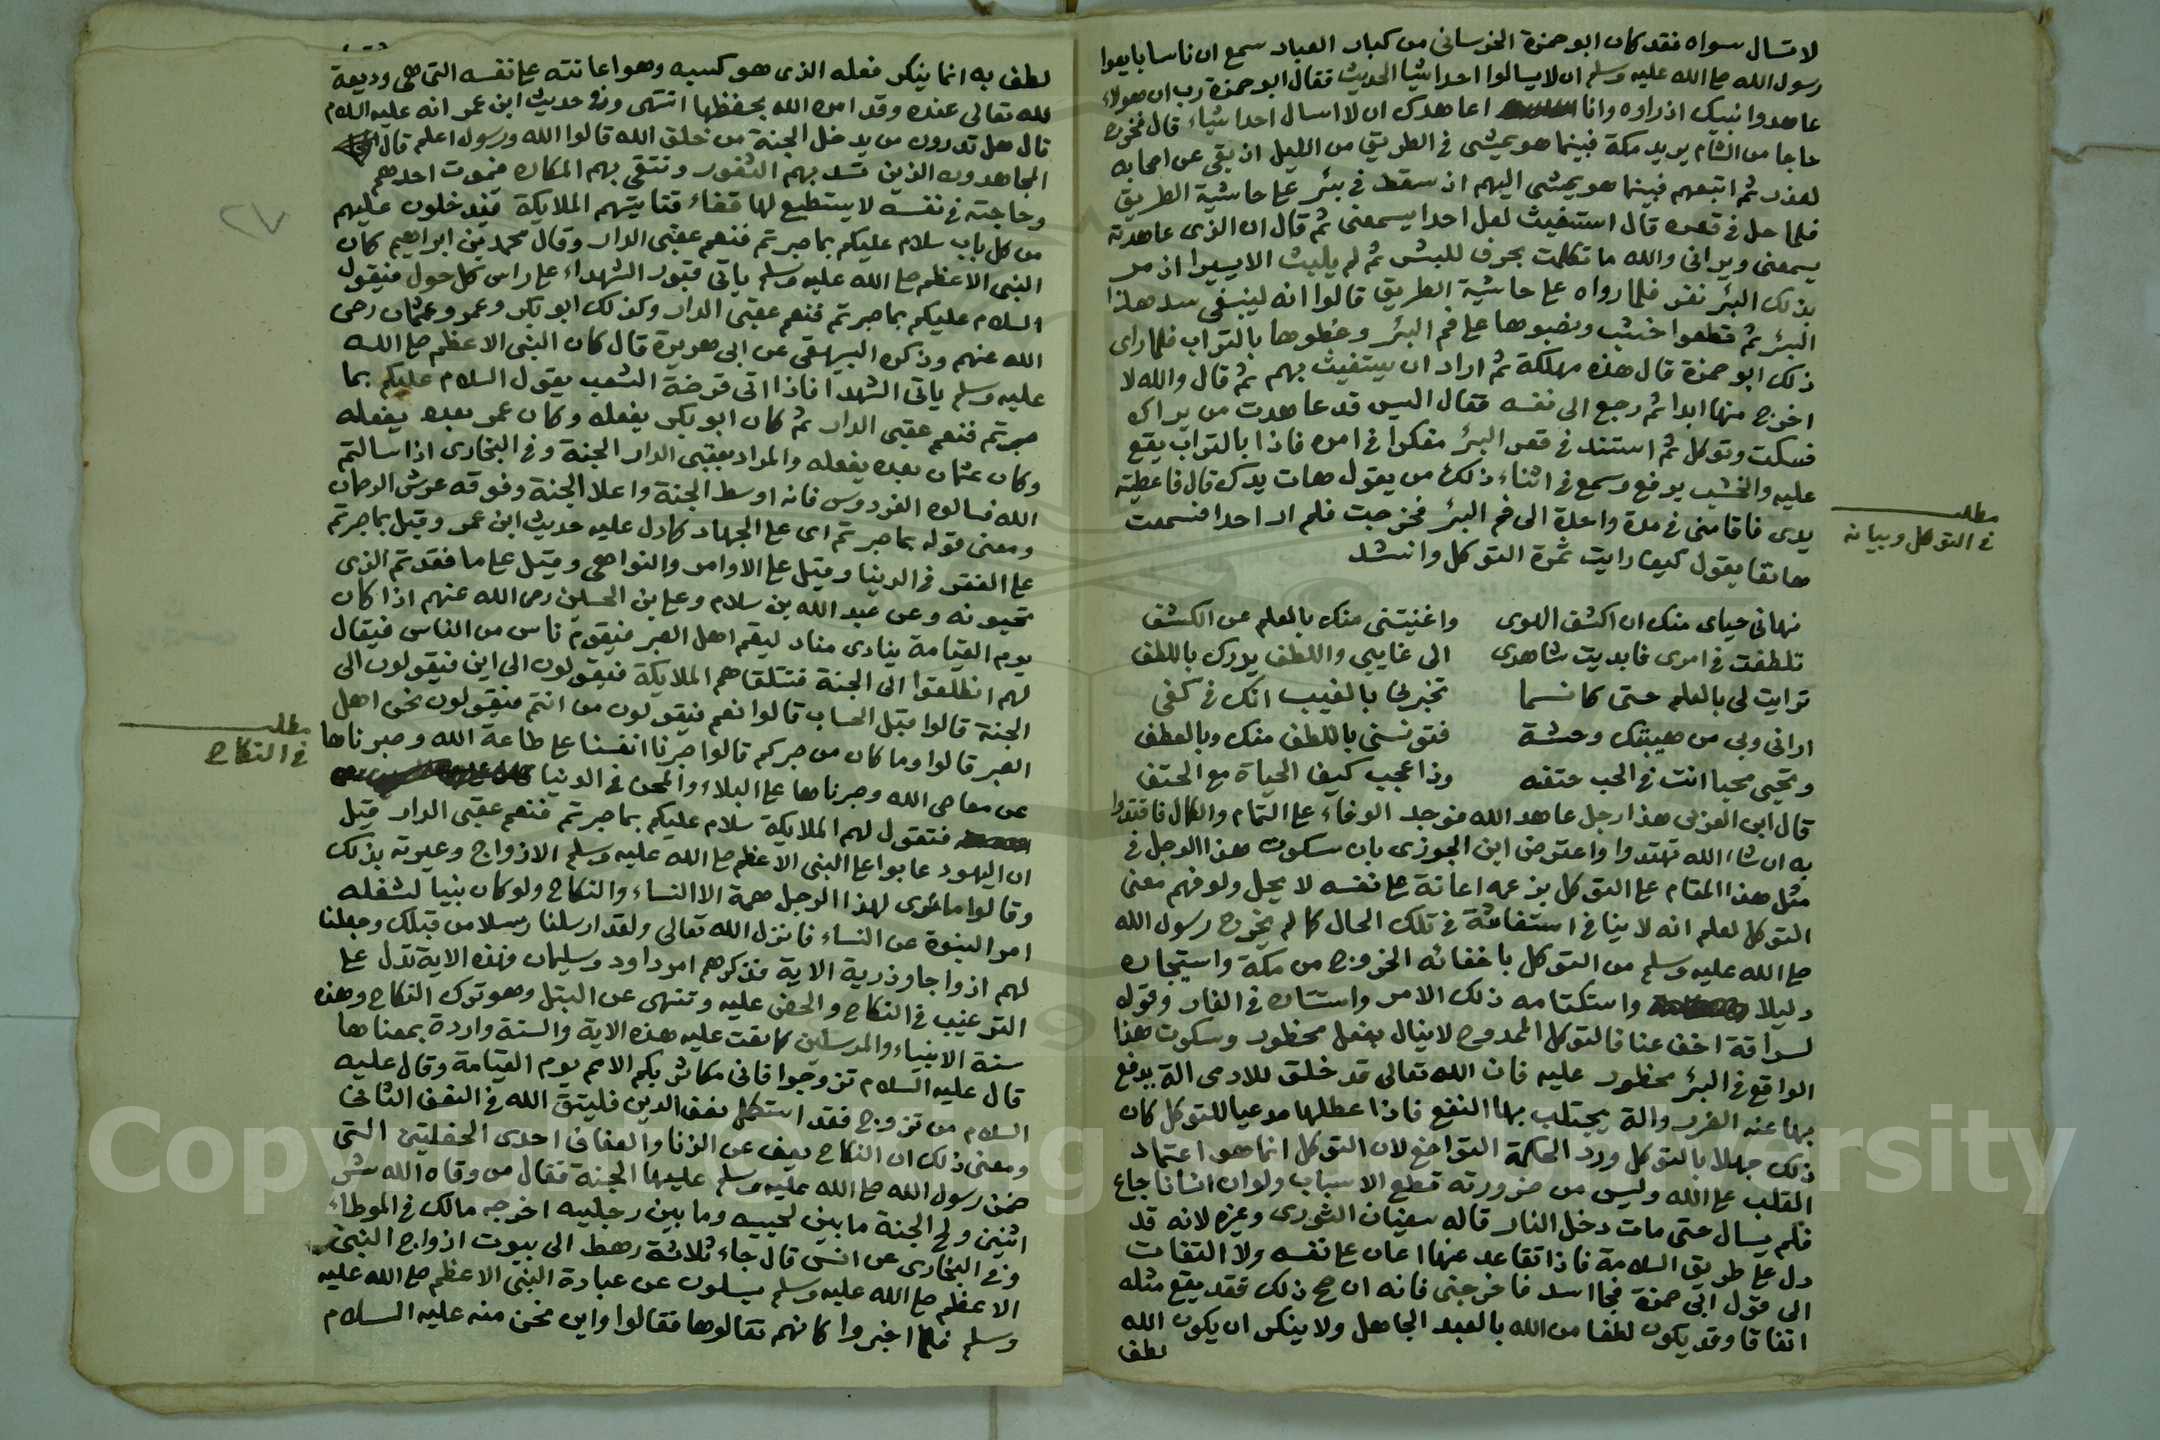 لا تسال سواه فقد كان ابو حمزة الخرساني من كبار العباد سمع ان ناسا بايعوا
رسول الله صلى الله عليه وسلم ان لا يسالوا احدا شيا الحديث فقال ابو حمزة رب ان هولاء
عاهدوا نبيك اذ راوه وانا اعاهدك ان لا اسال احدا شياء قال فخرج
حاجا من الشام يريد مكة فبينما هو يمشي في الطريق من الليل اذ بقي عن اصحابه
لعذر ثم اتبعهم فبينما هو يمشي اليهم اذ سقط في بئر على حاشية الطريق
فلما حل في قعره قال استغيث لعل احدا يسمعني ثم قال ان الذي عاهدته
يسمعني ويراني والله ما تكلمت بحرف للبشر ثم لم يلبث الا يسيرا اذ مر
بذلك البئر نفر فلما رواه على حاشية الطريق قالوا انه لينبغي سد هذا
البئر ثم قطعوا خشب ونصبوها على فم البئر وغطوها بالتراب فلما راى
ذلك ابو حمزة قال هذه مهلكة ثم اراد ان يستغيث بهم ثم قال والله لا
اخرج منها ابدا ثم رجع الى نفسه فقال اليس قد عاهدت من يراك
فسكت وتوكل ثم استند في قعر البئر مفكرا في امره فاذا بالتراب يقع
عليه والخشب يرفع وسمع في اثناء ذلك من يقول هات يدك قال فاعطيته
يدي فاقامني في مرة واحدة الى فم البئر فخرجت فلم ار احدا فسمعت
هاتفا يقول كيف رايت ثمرة التوكل وانشد
مطلب
في التوكل وبيانه
نهاني حياي منك ان اكشف الهوى واغنيتني منك بالعلم عن الكشف
تلطفت في امري فابديت شاهدي الى غايبي واللطف يدرك باللطف
ترايت لي بالعلم حتى كانما تخبرني بالغيب انك في كفي
اراني وبي من هيبتك وحشة فتونسني باللطف منك وبالعطف
وتحيي محبا انت في الحب حتفه وذا عجب كيف الحياة مع الحتف
قال ابن العربي هذا رجل عاهد الله فوجد الوفاء على التمام والكمال فاقتدوا
به ان شاء الله تهتدوا واعترض ابن الجوزي بان سكوت هذا الرجل في
مثل هذا المقام على التوكل بزعمه اعانة على نفسه لا يحل ولو فهم معنى
التوكل لعلم انه لا ينافي استغاثة في تلك الحال كما لم يخرج رسول الله
صلى الله عليه وسلم من التوكل باخفائه الخروج من مكة واستيجاره
دليلا واستكتامه ذلك الامر واستتاره في الغار وقوله
لسراقة اخف عنا فالتوكل الممدوح لا ينال بفعل محظور وسكوت هذا
الواقع في البئر محظور عليه فان الله تعالى قد خلق للادمي الة يدفع
بها عنه الضرر والة يجتلب بها النفع فاذا عطلها مدعيا للتوكل كان
ذلك جهلا بالتوكل ورد الحكمة التواضع لان التوكل انما هو اعتماد
القلب على الله وليس من ضرورته قطع الاسباب ولو ان انسانا جاع
فلم يسال حتى مات دخل النار قاله سفيان الثوري وغيره لانه قد
دل على طريق السلامة فاذا تقاعد عنها اعان على نفسه ولا التفات
الى قول ابي حمزة فجا اسد فاخرجني فانه ان صح ذلك فقد يقع مثله
اتفاقا وقد يكون لطفا من الله بالعبد الجاهل ولا ينكر ان يكون الله
لطف
لطف به انما ينكر فعله الذي هو كسبه وهو اعانته على نفسه التي هي وديعة
لله تعالى عنده وقد امره الله بحفظها انتهى وفي حديث ابن عمر انه عليه السلام
قال هل تدرون من يدخل الجنة من خلق الله قالوا الله ورسوله اعلم قال
المجاهدون الذين تسد بهم الثغور وتتقى بهم المكاره فيموت احدهم
وحاجته في نفسه لا يستطيع لها قضاء فتاتيهم الملايكة فيدخلون عليهم
من كل باب سلام عليكم بما صبرتم فنعم عقبى الدار وقال محمد بن ابراهيم كان
النبي الاعظم صلى الله عليه وسلم ياتي قبور الشهداء على راس كل حول فيقول
السلام عليكم بما صبرتم فنعم عقبى الدار وكذلك ابو بكر وعمر وعثمان رضى
الله عنهم وذكره البيهقي عن ابي هريرة قال كان النبي الاعظم صلى الله
عليه وسلم ياتي الشهدا فاذا اتى فرضة الشعب يقول السلام عليكم بما
صبرتم فنعم عقبى الدار ثم كان ابو بكر يفعله وكان عمر بعده يفعله
وكان عثمان بعده يفعله والمراد بعقبى الدار الجنة وفي البخاري اذا سالتم
الله فسالوه الفردوس فانه اوسط الجنة واعلا الجنة وفوقه عرش الرحمان
ومعنى قوله بما صبرتم اى على الجهاد كما دل عليه حديث ابن عمر وقيل بما صبرتم
على الفقر في الدنيا وقيل على الاوامر والنواهي وقيل على ما فقدتم الذي
تحبونه وعن عبد الله بن سلام وعلى بن الحسين رضى الله عنهم اذا كان
يوم القيامة ينادي مناد ليقم اهل الصبر فيقوم ناس من الناس فيقال
لهم انطلقوا الى الجنة فتتلقاهم الملايكة فيقولون الى اين فيقولون الى
الجنة قالوا قبل الحساب قالوا نعم فيقولون من انتم فيقولون نحن اهل
الصبر قالوا وما كان من صبركم قالوا صبرنا انفسنا على طاعة الله وصبرناها
عن معاصي الله وصبرناها على البلاء والمحن في الدنيا
فتقول لهم الملايكة سلام عليكم بما صبرتم فنعم عقبى الدار قيل
مطلب
في النكاح
ان اليهود عابوا على النبي الاعظم صلى الله عليه وسلم الازواج وعيرته بذلك
وقالوا ما نرى لهذا الرجل همة الا النساء والنكاح ولو كان نبيا لشغله
امر النبوة عن النساء فانزل الله تعالى ولقد ارسلنا رسلا من قبلك وجعلنا
لهم ازواجا وذرية الاية فذكرهم امر داود وسليمان فهذه الاية تدل على
الترغيب في النكاح والحض عليه وتنهى عن التبتل وهو ترك النكاح وهذه
سنة الانبياء والمرسلين كما نصت عليه هذه الاية والسنة واردة بمعناها
قال عليه السلام تزوجوا فاني مكاثر بكم الامم يوم القيامة وقال عليه
السلام من تزوج فقد استكمل نصف الدين فليتق الله في النصف الثاني
ومعنى ذلك ان النكاح يعف عن الزنا والعفاف احدى الخصلتين التي
ضمن رسول الله صلى الله عليه وسلم عليهما الجنة فقال من وقاه الله شر
اثنين ولج الجنة ما بين لحييه وما بين رجليه اخرجه مالك في الموطاء
وفي البخاري عن انس قال جاء ثلاثة رهط الى بيوت ازواج النبي
الاعظم صلى الله عليه وسلم يسلون عن عبادة النبي الاعظم صلى الله عليه
وسلم فلما اخبروا كانهم تقالوها فقالوا واين نحن منه عليه السلام